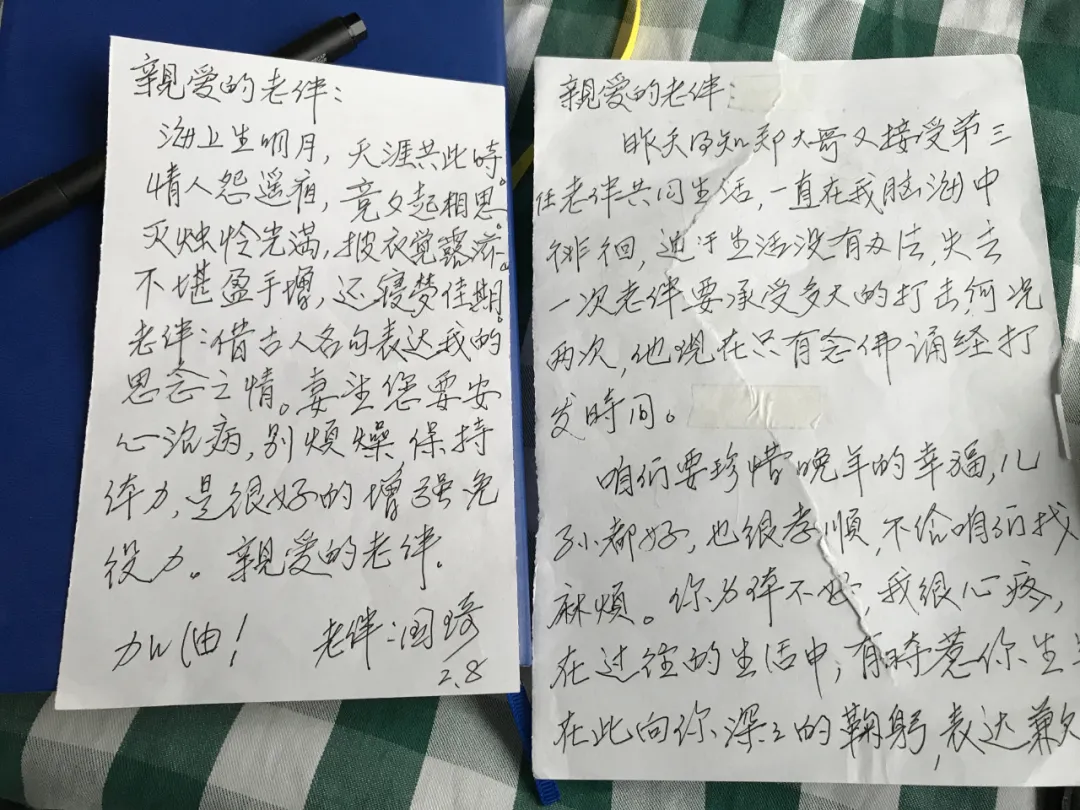 親愛的老伴：
海上生明月，天涯共此時。
情人怨遥夜，竟夕起相思。
灭烛怜光满，披衣觉露滋。
不堪盈手增，还寝梦佳期。
老伴：借古人名句表达我的
思念之情。妻望您要安
心治病，别烦燥保持
体力，是很好的增强免
役力。親爱的老伴。
加油！ 老伴：国琦
2.8
親爱的老伴：
昨天得知郑大哥又接受第三
任老伴共同生活，一直在我脑海中
徘徊，迫于生活没有办法，失去
一次老伴要承受多大的打击，何况
两次，他现在只有念佛诵经打
发時间。
咱们要珍惜晚年的幸福，儿
孙都好，也很孝順，不给咱们找
麻烦。你身体不好，我很心疼，
在过往的生活中，有時惹你生
在此向你深々的鞠躬，表达歉